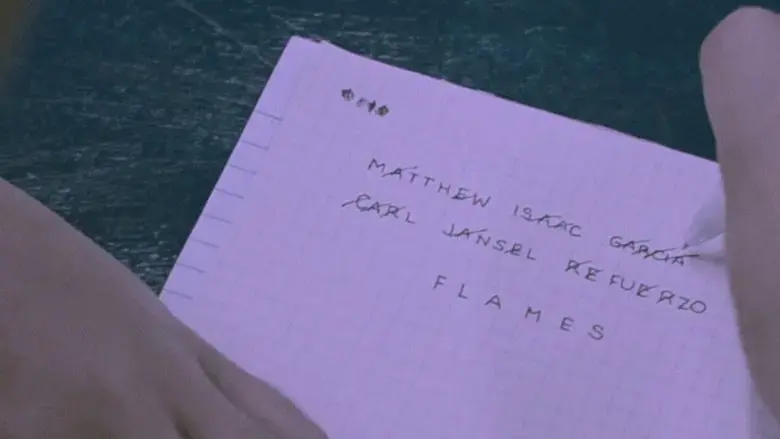 MATTHEW ISAAC GARCIA
CARL JANSEL REFUERZO
FLAMES